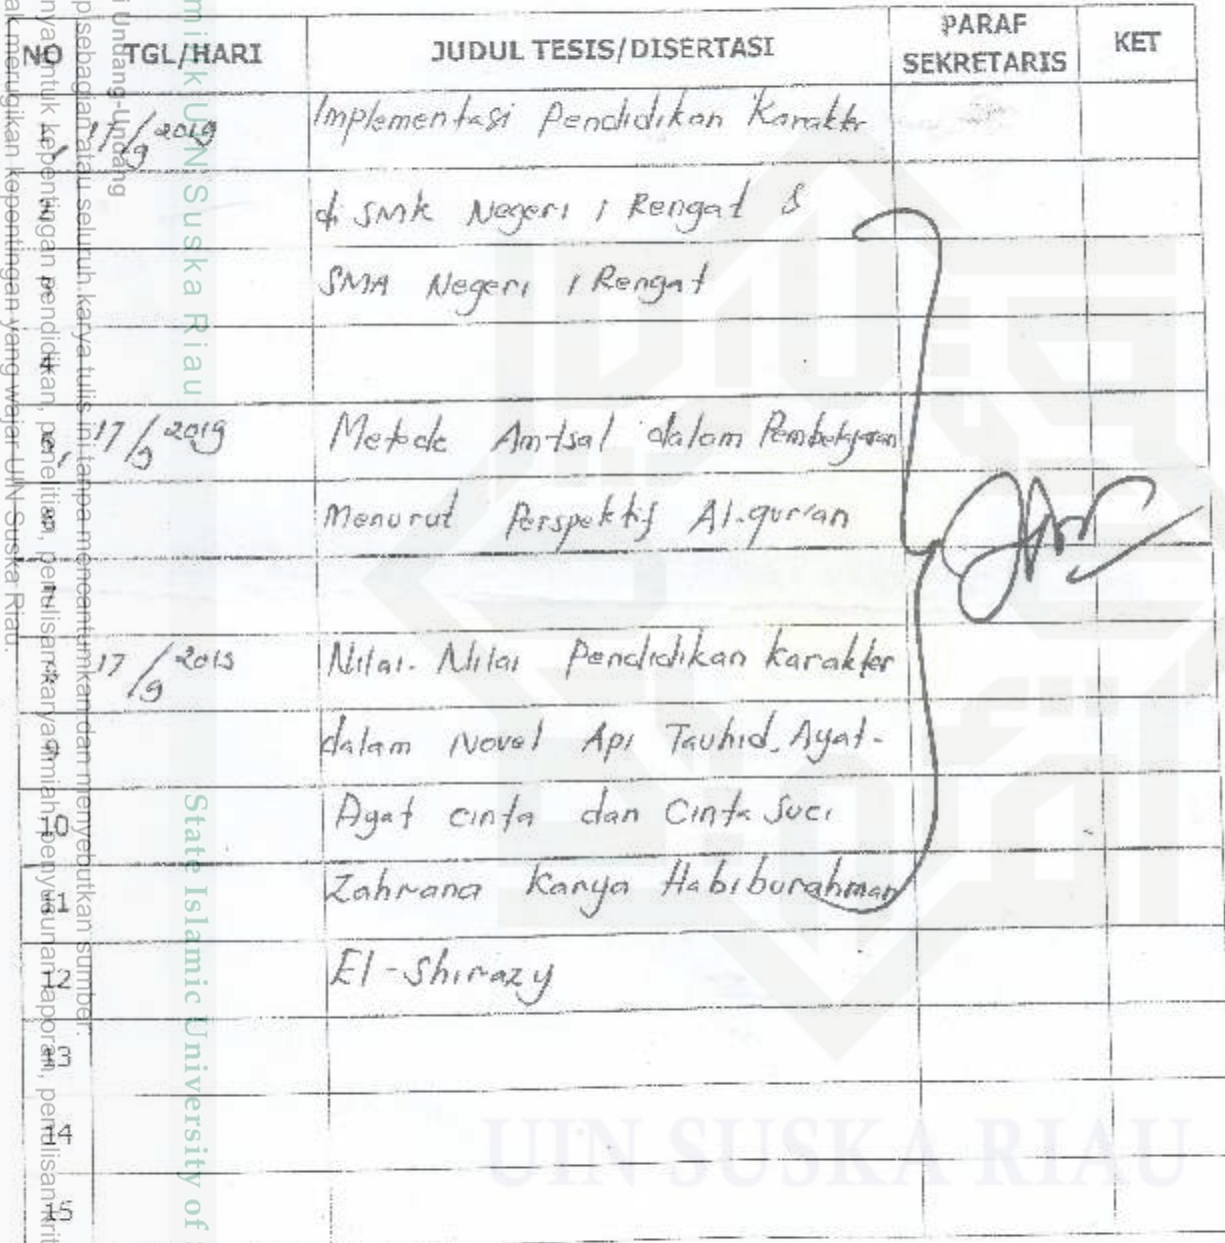 NO TGL/HARI JUDUL TESIS/DISERTASI PARAF SEKRETARIS KET
1, 17/9 2019 Implementasi Pendidikan Karakter
2 di SMK Negeri 1 Rengat &
3 SMA Negeri 1 Rengat
4
17/9 2019 Metode Amtsal dalam Pembelajaran
Menurut Perspektif Al-qur'an
7
17/9 2019 Nilai-Nilai Pendidikan karakter
9 dalam Novel Api Tauhid, Ayat-
10 Ayat cinta dan Cinta Suci
11 Zahrana Karya Habiburahman
12 El-Shirazy
13
14
15
UIN SUSKA RIAU
k UIN Suska Riau
State Islamic University of
i Undang-Undang
sebagian atau seluruh karya tulis ini tanpa mencantumkan dan menyebutkan sumber.
untuk kepentingan pendidikan, penelitian, penulisan karya ilmiah, penyusunan laporan, penulisan
merugikan kepentingan yang wajar UIN Suska Riau.